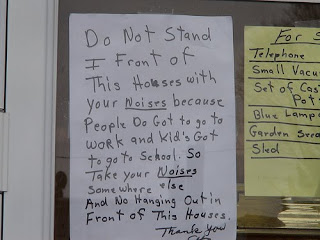 Do Not Stand
I Front of
This Houses with
your Noises because
People Do Got to go to
work and Kid's Got
to go to School. So
Take your Noises
somewhere else
And No Hanging Out in
Front of This Houses.
Thank you
For S
Telephone
Small Vacu
Set of Cas
Pot
Blue Lamp
Garden
Sled